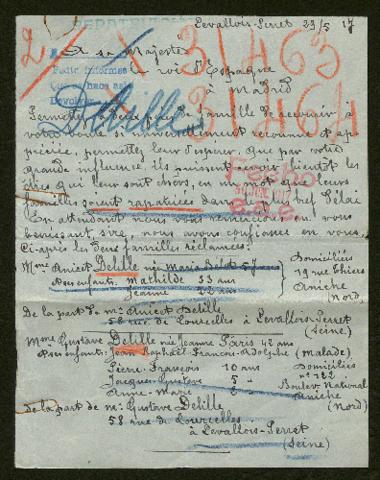 REPATRIACION
Levallois-Perret 23/5 17
2/ X 31463
A sa Majesté
Pedir informes
le roi d'Espagne
à Madrid
Devolver
31464
Delille
votre bonté si universellement reconnue et ap
préciée, permettez leur d'espérer, que par votre
grande influence ils puissent revoir bientôt les
êtres qui leur sont chers, en un mot que leurs
familles soient rapatriées dans le plus bref délai
En attendant nous vous remercions en vous
bénissant, sire, nous avons confiance en vous.
Ci-après les deux familles réclamées:
Mme Anicet Delille née Maria 57
Ses enfants: Mathilde 33 ans
Jeanne 22 ans
Domiciliées
19 rue Thiers
Aniche
Nord
De la part de Mr Anicet Delille
58 rue de Courcelles à Levallois-Perret
(Seine)
Mme Gustave Delille née Jeanne Paris 42 ans
Ses enfants: Jean Raphaël François-Adolphe (malade)
Pierre-François 10 ans
Jacques-Gustave 5 "
Anne-Marie
Domiciliés
n° 122
Boulev National
Aniche
(Nord)
de la part de Mr Gustave Delille
58 rue de Courcelles
à Levallois-Perret
(Seine)